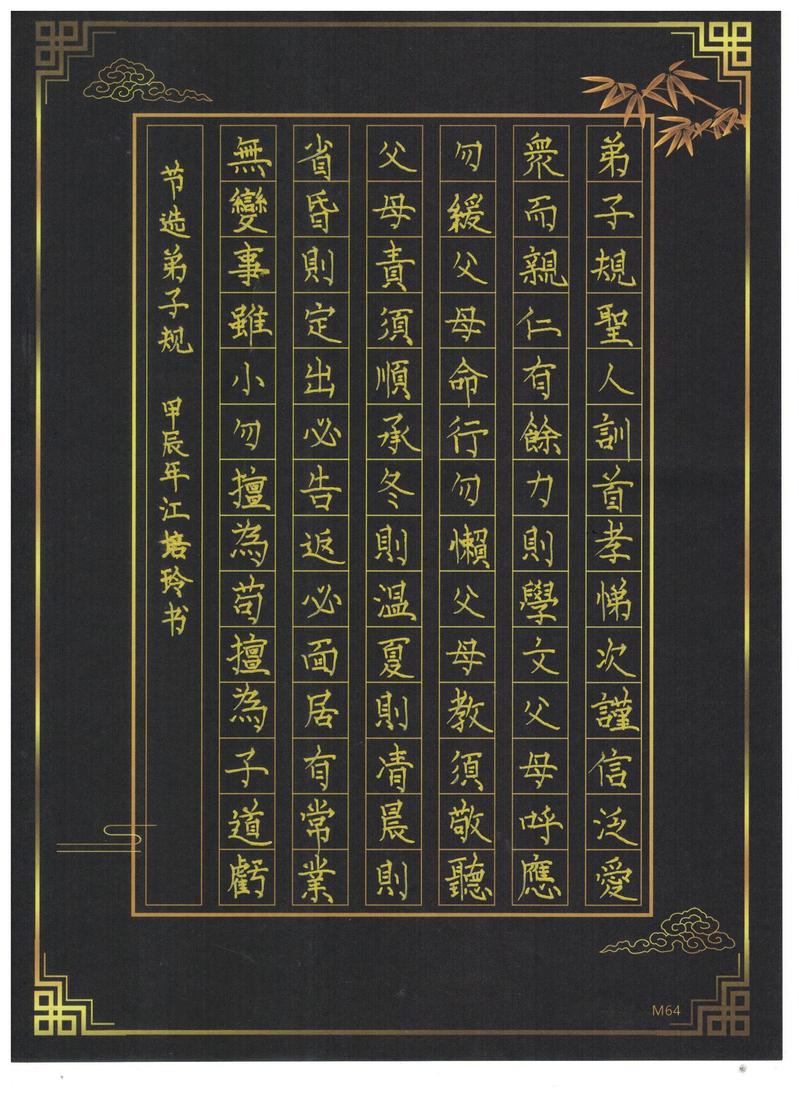 弟子規聖人訓首孝悌次謹信泛愛
衆而親仁有餘力則學文父母呼應
勿緩父母命行勿懶父母教須敬聽
父母責須順承冬則溫夏則凊晨則
省昏則定出必告返必面居有常業
無變事雖小勿擅為苟擅為子道虧
节选弟子规 甲辰年江培玲书
M64